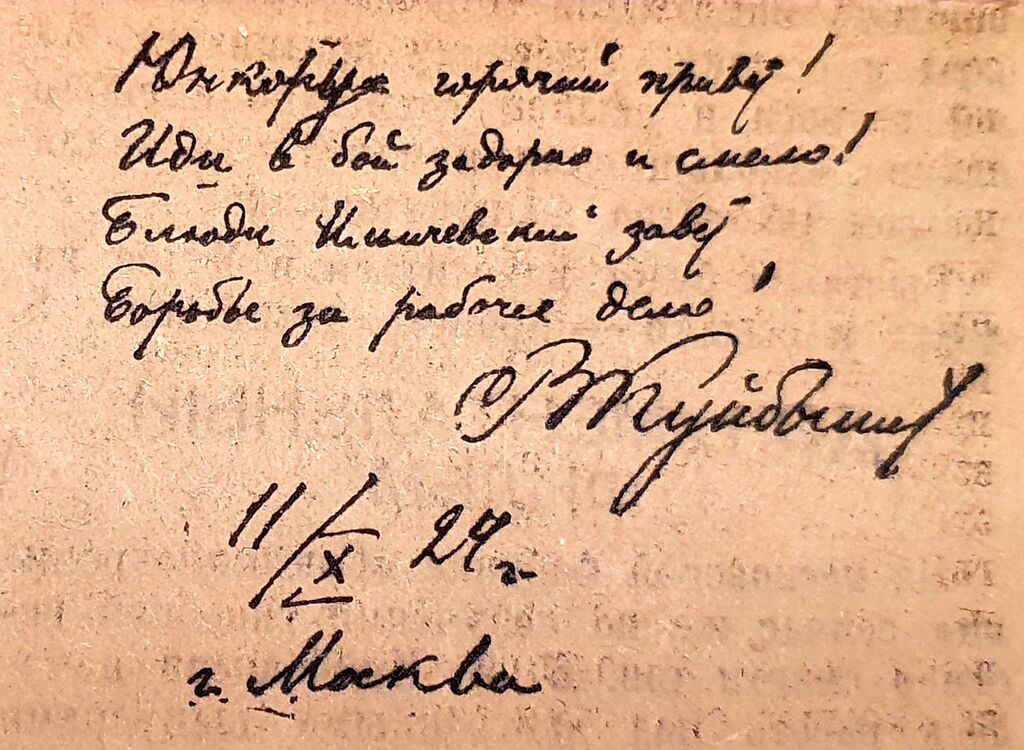 Юнкору горячий привет!
Иди в бой задорно и смело!
Блюди Ильичевский завет
Борьбы за рабочее дело!
В Куйбышев
11/X 24 г.
г. Москва